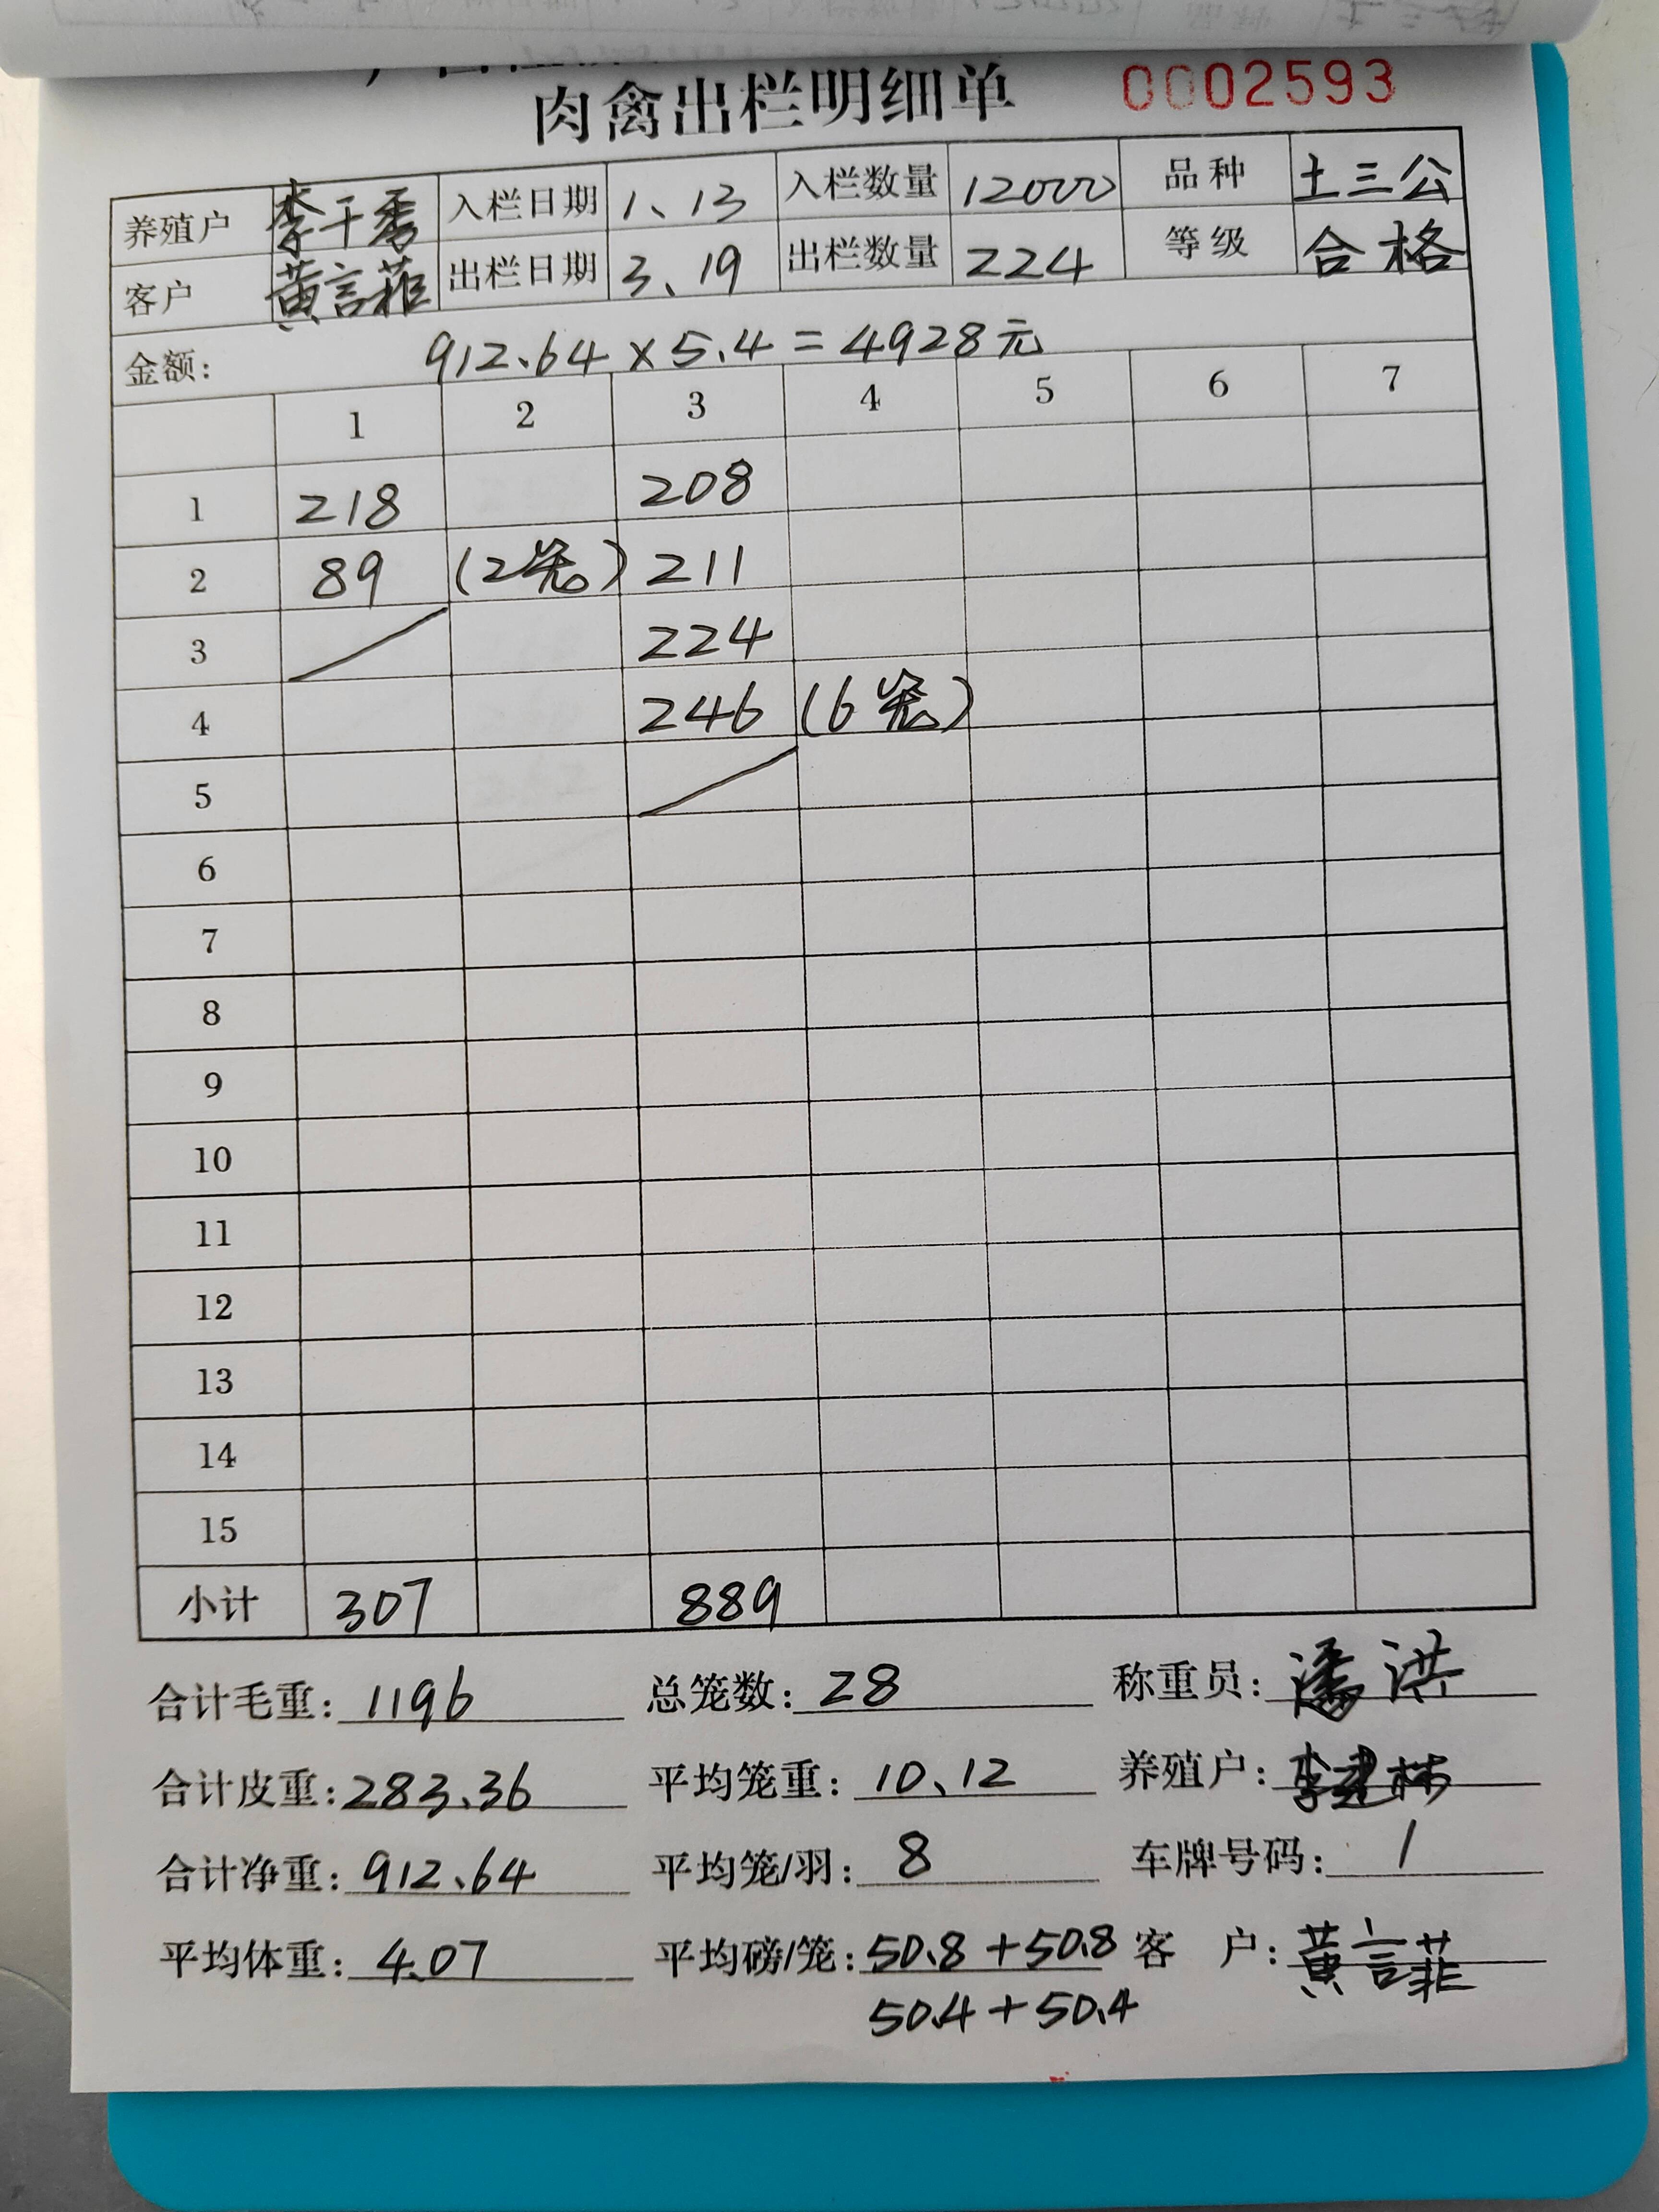 肉禽出栏明细单 0002593
养殖户 李千秀 入栏日期 1、13 入栏数量 12000 品种 土三公
客户 黄言菲 出栏日期 3、19 出栏数量 224 等级 合格
金额: 912.64 × 5.4 = 4928元
1 2 3 4 5 6 7
1 218 208
2 89 (2笼) 211
3 224
4 246 (6笼)
5
6
7
8
9
10
11
12
13
14
15
小计 307 889
合计毛重: 1196 总笼数: 28 称重员: 潘洪
合计皮重: 283.36 平均笼重: 10.12 养殖户: 李建林
合计净重: 912.64 平均笼/羽: 8 车牌号码: 1
平均体重: 4.07 平均磅/笼: 50.8 + 50.8 客 户: 黄言菲
50.4 + 50.4